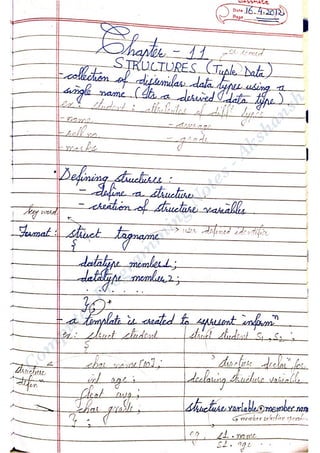 classmate
Date 16.4.2012
Page
Chapter - 11
STRUCTURES (Tuple Data)
- collection of dissimilar data types using a
single name (Its a derived data type)
ex. student : attributes of diff types
- name - average
- roll no - grade
- marks
• Defining structures :
- define a structure
- creation of structure variables
key word
Format : struct tagname → user defined identifier
{
datatype member1 ;
datatype member2 ;
. . . . . .
} ;
- a template is created to represent inform^n
ex : struct student struct student S1, S2 ;
{
char name[50] ; structure declar^n for
structure int age ; declaring structure variable
defin float avg ;
char grade ; structure variable . member name
} ; member selection operator
eg. S1.name
S1.age